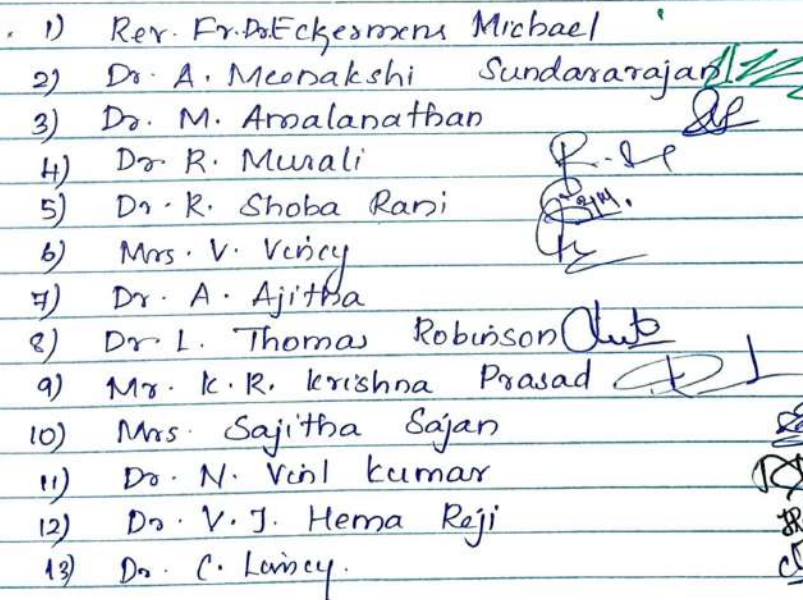 1) Rev. Fr. Dr. Eckesmens Michael
2) Dr. A. Meenakshi Sundararajan
3) Dr. M. Amalanathan
4) Dr R. Murali
5) Dr. R. Shoba Rani
6) Mrs. V. Vency
7) Dr. A. Ajitha
8) Dr. L. Thomas Robinson
9) Mr. K. R. Krishna Prasad
10) Mrs. Sajitha Sajan
11) Dr. N. Kumar
12) Dr. V. J. Hema Reji
13) Dr. C.